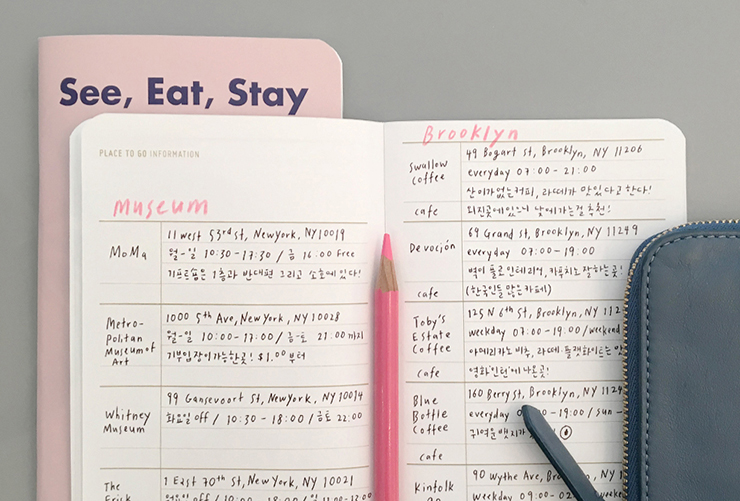 See, Eat, Stay
PLACE TO GO INFORMATION
Museum
MoMA
11 West 53rd st, Newyork, NY 10019
월-일 10:30-17:30 / 금 16:00 Free
기프트숍은 1층과 반대편 그리고 소호에 있다!
Metro-
politan
Museum of
Art
1000 5th Ave, New York, NY 10028
월-일 10:00-17:00 / 금-토 21:00 까지
기부입장이 가능한곳! $1.00 부터
Whitney
Museum
99 Gansevoort St, Newyork, NY 10014
화요일 off / 10:30 - 18:00 / 금토 22:00
The
Frick
1 East 70th st, New York, NY 10021
월요일 off / 10:00 - 18:00 / 일 11:00-13:00
Brooklyn
Swallow
Coffee
cafe
49 Bogart st, Brooklyn, NY 11206
everyday 07:00-21:00
산미가 없는 커피, 라떼가 맛있다고 한다!
외진곳에 있으니 낮에 가는걸 추천!
Devoción
cafe
69 Grand st, Brooklyn, NY 11249
everyday 07:00-19:00
벽이 플로인테리어, 카푸치노 잘하는 곳!
(한국인들 많은 카페)
Toby's
Estate
Coffee
cafe
125 N 6th st, Brooklyn, NY 112
weekday 07:00-19:00 / weekend
아메리카노 비추, 라떼·플랫화이트는 맛
영화 '인턴'에 나온곳!
Blue
Bottle
Coffee
cafe
160 Berry st, Brooklyn, NY 1124
everyday - 19:00 / sun -
귀여운 뱃지가
Kinfolk
90
90 Wythe Ave, Brooklyn, NY
Weekday 09:00-02